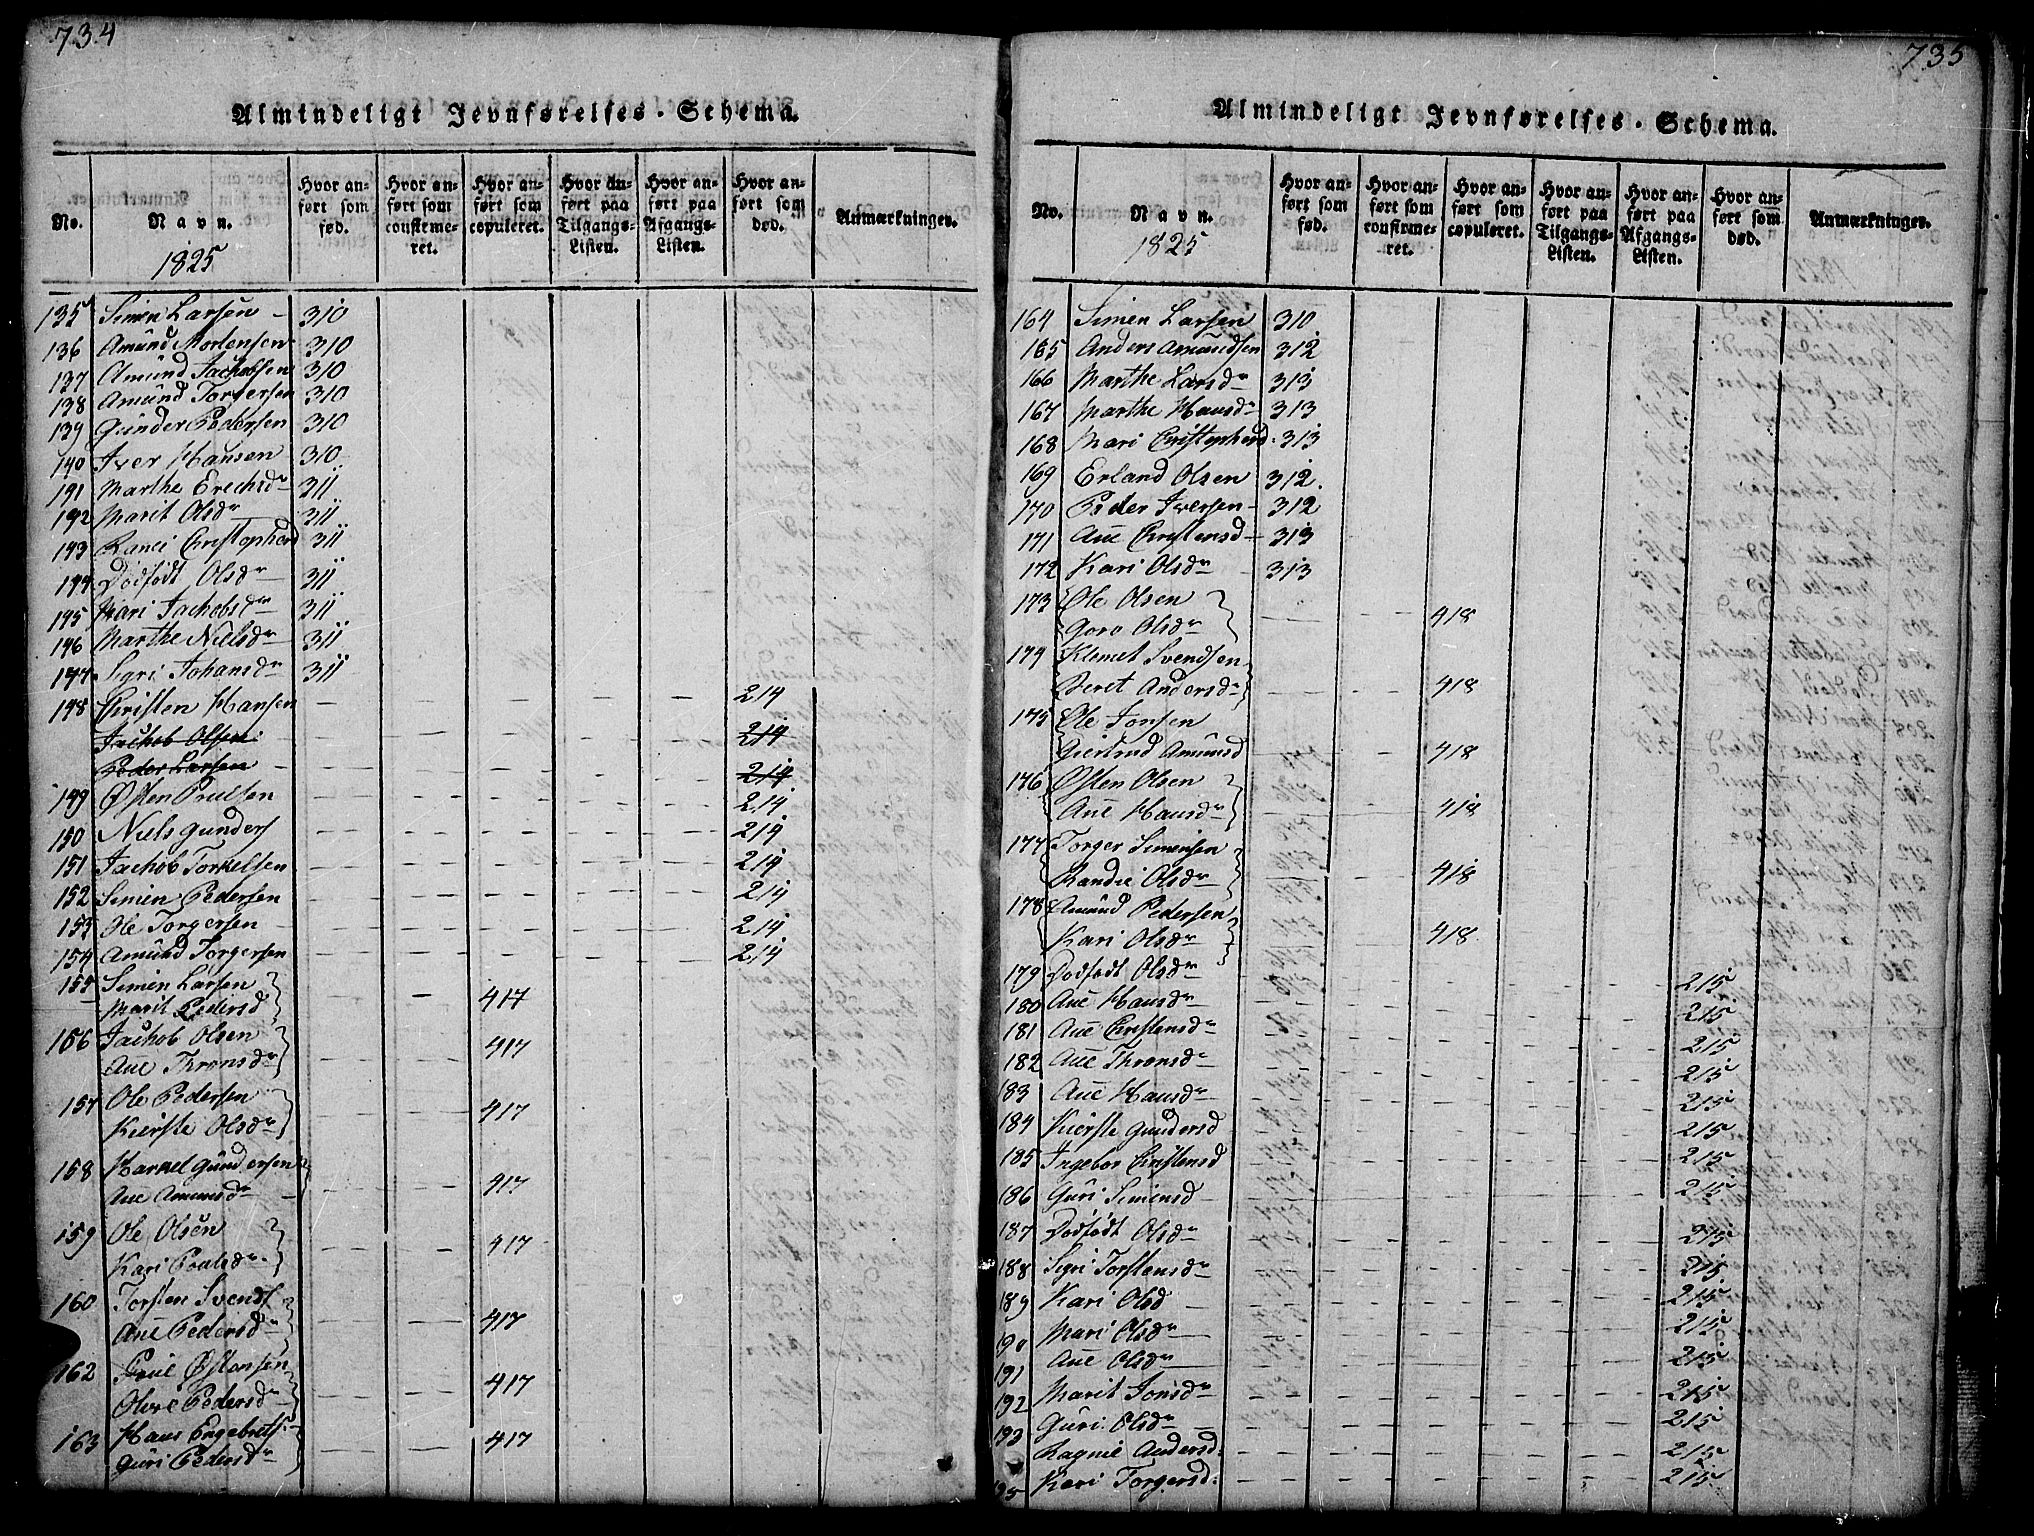 734
Almindeligt Jevnførelses-Schema.
No. Navn. Hvor anført som fød. Hvor anført som confirmeret. Hvor anført som copuleret. Hvor anført paa Tilgangs-Listen. Hvor anført paa Afgangs-Listen. Hvor anført som død. Anmærkninger.
1825
135 Simen Larsen 310
136 Amund Mortensen 310
137 Amund Jachobsen 310
138 Amund Torgersen 310
139 Gunder Pedersen 310
140 Iver Hansen 310
191 Marthe Erechsdr 311
192 Marit Olsdr 311
193 Ranei Christophersd 311
194 Dødfødt Olsdr 311
195 Kari Jachobsdr 311
196 Marthe Nielsdr 311
197 Sigri Johansdr 311
198 Christen Hansen 214
Jachob Olsen 214
Peder Larsen 214
149 Østen Pouelsen 214
150 Niels Gunders 214
151 Jachob Torkelsen 214
152 Simen Pedersen 214
153 Ole Torgersen 214
154 Amund Torgersen 214
155 Simen Larsen
Marit Pedersd 417
156 Jachob Olsen
Ane Thronsdr 417
157 Ole Pedersen
Kierste Olsdr 417
158 Harkel Gundersen
Ane Amunsdr 417
159 Ole Olsen
Kari Poulsdr 417
160 Torsten Svends
Ane Pedersdr 417
162 Poul Østensen
Olave Pedersdr 417
163 Hans Engebrets
Guri Pedersdr 417
735
Almindeligt Jevnførelses-Schema.
No. Navn. Hvor anført som fød. Hvor anført som confirmeret. Hvor anført som copuleret. Hvor anført paa Tilgangs-Listen. Hvor anført paa Afgangs-Listen. Hvor anført som død. Anmærkninger.
1825
164 Simen Larsen 310
165 Anders Amundsen 312
166 Marthe Larsdr 313
167 Marthe Hansdr 313
168 Mari Christophersd 313
169 Erland Olsen 312
170 Peder Iversen 312
171 Ane Christensd 313
172 Kari Olsdr 313
173 Ole Olsen
Goro Olsdr 418
174 Klemet Svendsen
Beret Andersdr 418
175 Ole Jonsen
Giertrud Amunsd 418
176 Østen Olsen
Ane Hansdr 418
177 Torger Simensen
Randie Olsdr 418
178 Amund Pedersen
Kari Olsdr 418
179 Dødfødt Olsdr 215
180 Ane Hansdr 215
181 Ane Christensdr 215
182 Ane Thronsdr 215
183 Ane Hansdr 215
184 Kierste Gundersd 215
185 Ingebor Christensd 215
186 Guri Simensd 215
187 Dødfødt Olsdr 215
188 Sigri Torstensdr 215
189 Kari Olsd 215
190 Mari Olsdr 215
191 Ane Olsdr 215
192 Marit Jonsdr 215
193 Guri Olsdr 215
Ragnie Andersd 215
195 Kari Torgersd 215